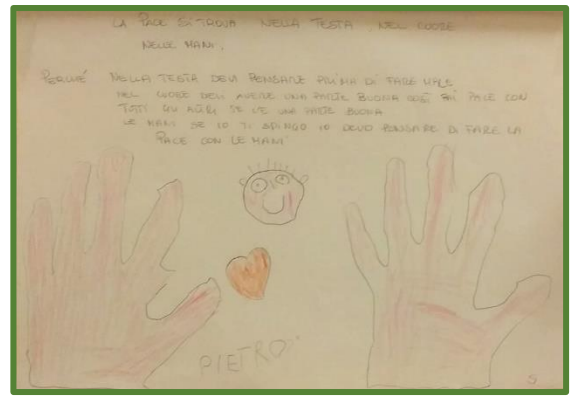 LA PACE SI TROVA NELLA TESTA, NEL CUORE
NELLE MANI.
PERCHÉ NELLA TESTA DEVI PENSARE PRIMA DI FARE MALE
NEL CUORE DEVI AVERE UNA PARTE BUONA COSÌ FAI PACE CON
TUTI GLI ALTRI SE C'È UNA PARTE BUONA
LE MANI SE IO TI SPINGO IO DEVO PENSARE DI FARE LA
PACE CON LE MANI
PIETRO
5